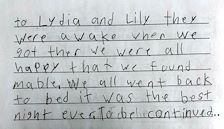 to Lydia and Lily they
were awake when we
got ther we were all
happy that we found
mable. We all went back
to bed it was the best
night ever. to be continued..